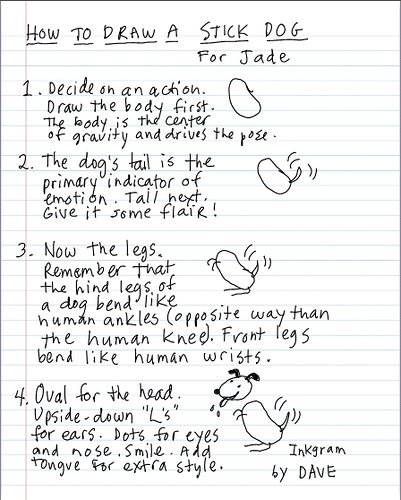 HOW TO DRAW A STICK DOG
For Jade
1. Decide on an action.
Draw the body first.
The body is the center
of gravity and drives the pose.
2. The dog's tail is the
primary indicator of
emotion. Tail next.
Give it some flair!
3. Now the legs.
Remember that
the hind legs of
a dog bend like
human ankles (opposite way than
the human knee). Front legs
bend like human wrists.
4. Oval for the head.
Upside-down "L's"
for ears. Dots for eyes
and nose. Smile. Add
tongue for extra style.
Inkgram
by DAVE